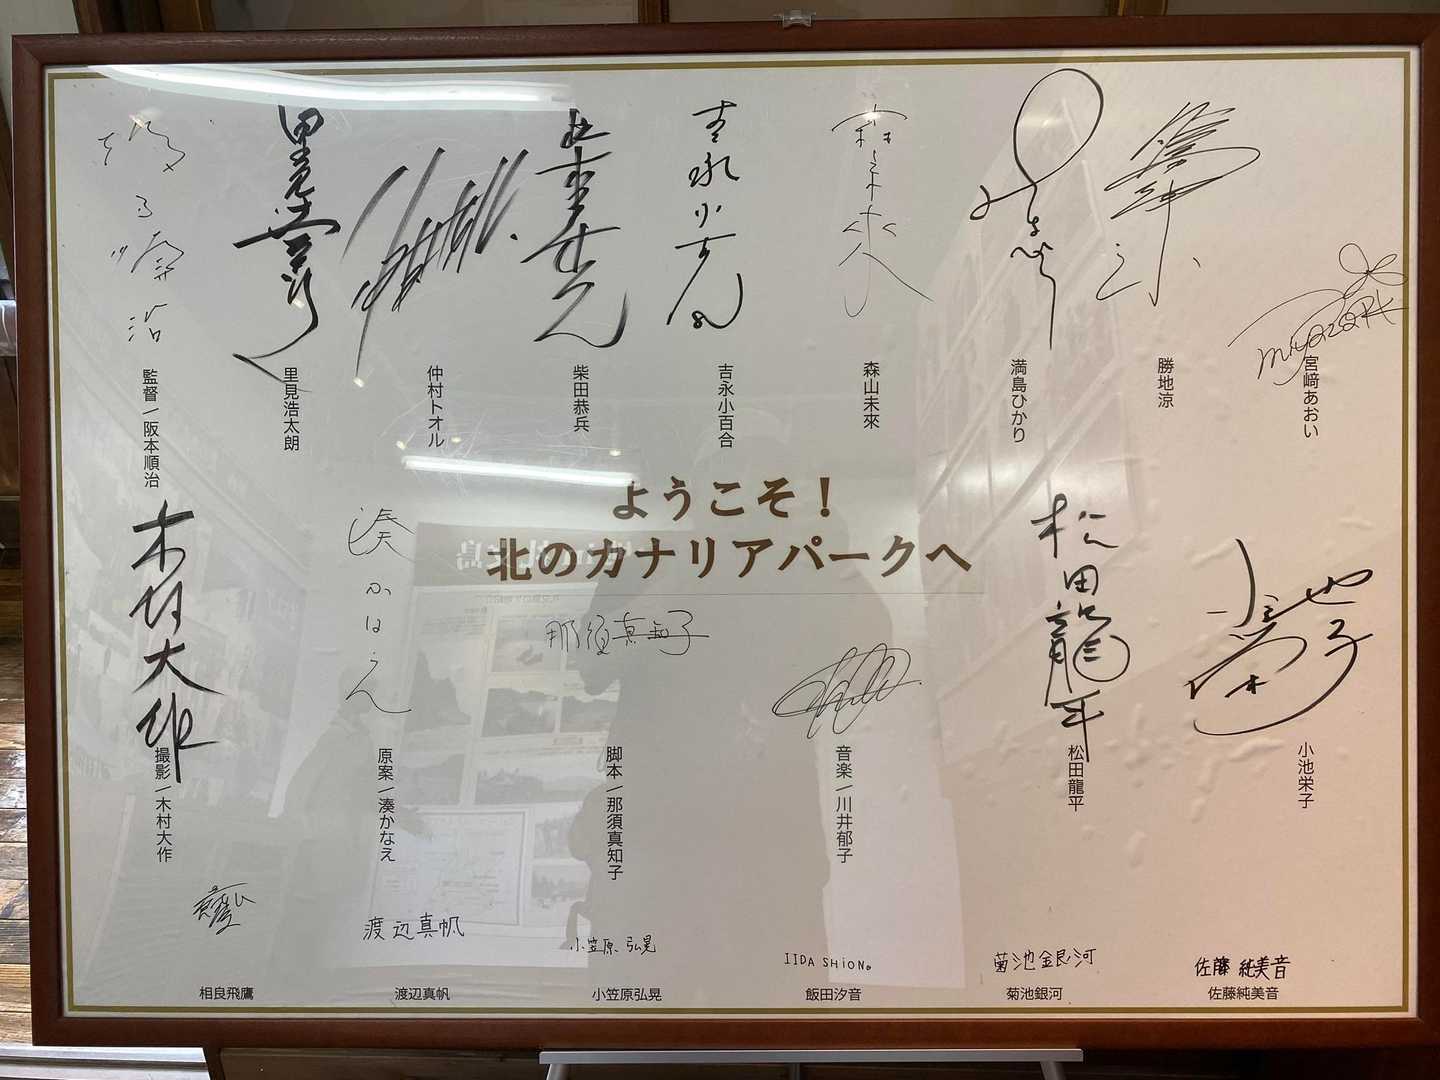 監督/阪本順治
里見浩太朗
仲村トオル
柴田恭兵
吉永小百合
森山未來
満島ひかり
勝地涼
宮﨑あおい
吉永小百合
森山未来
miyazaki
ようこそ！
北のカナリアパークへ
木村大作
湊かなえ
那須真知子
松田龍平
小池栄子
撮影/木村大作
原案/湊かなえ
脚本/那須真知子
音楽/川井郁子
松田龍平
小池栄子
渡辺真帆
小笠原弘晃
IIDA SHION。
菊池銀河
佐藤純美音
相良飛鷹
渡辺真帆
小笠原弘晃
飯田汐音
菊池銀河
佐藤純美音